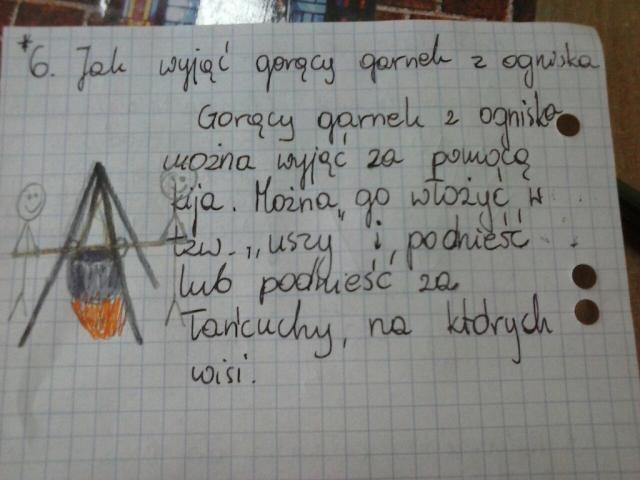 *6. Jak wyjąć gorący garnek z ogniska
Gorący garnek z ogniska
można wyjąć za pomocą
kija. Można go włożyć w
tzw. "uszy" i podnieść
lub podnieść za
łańcuchy, na których
wisi.